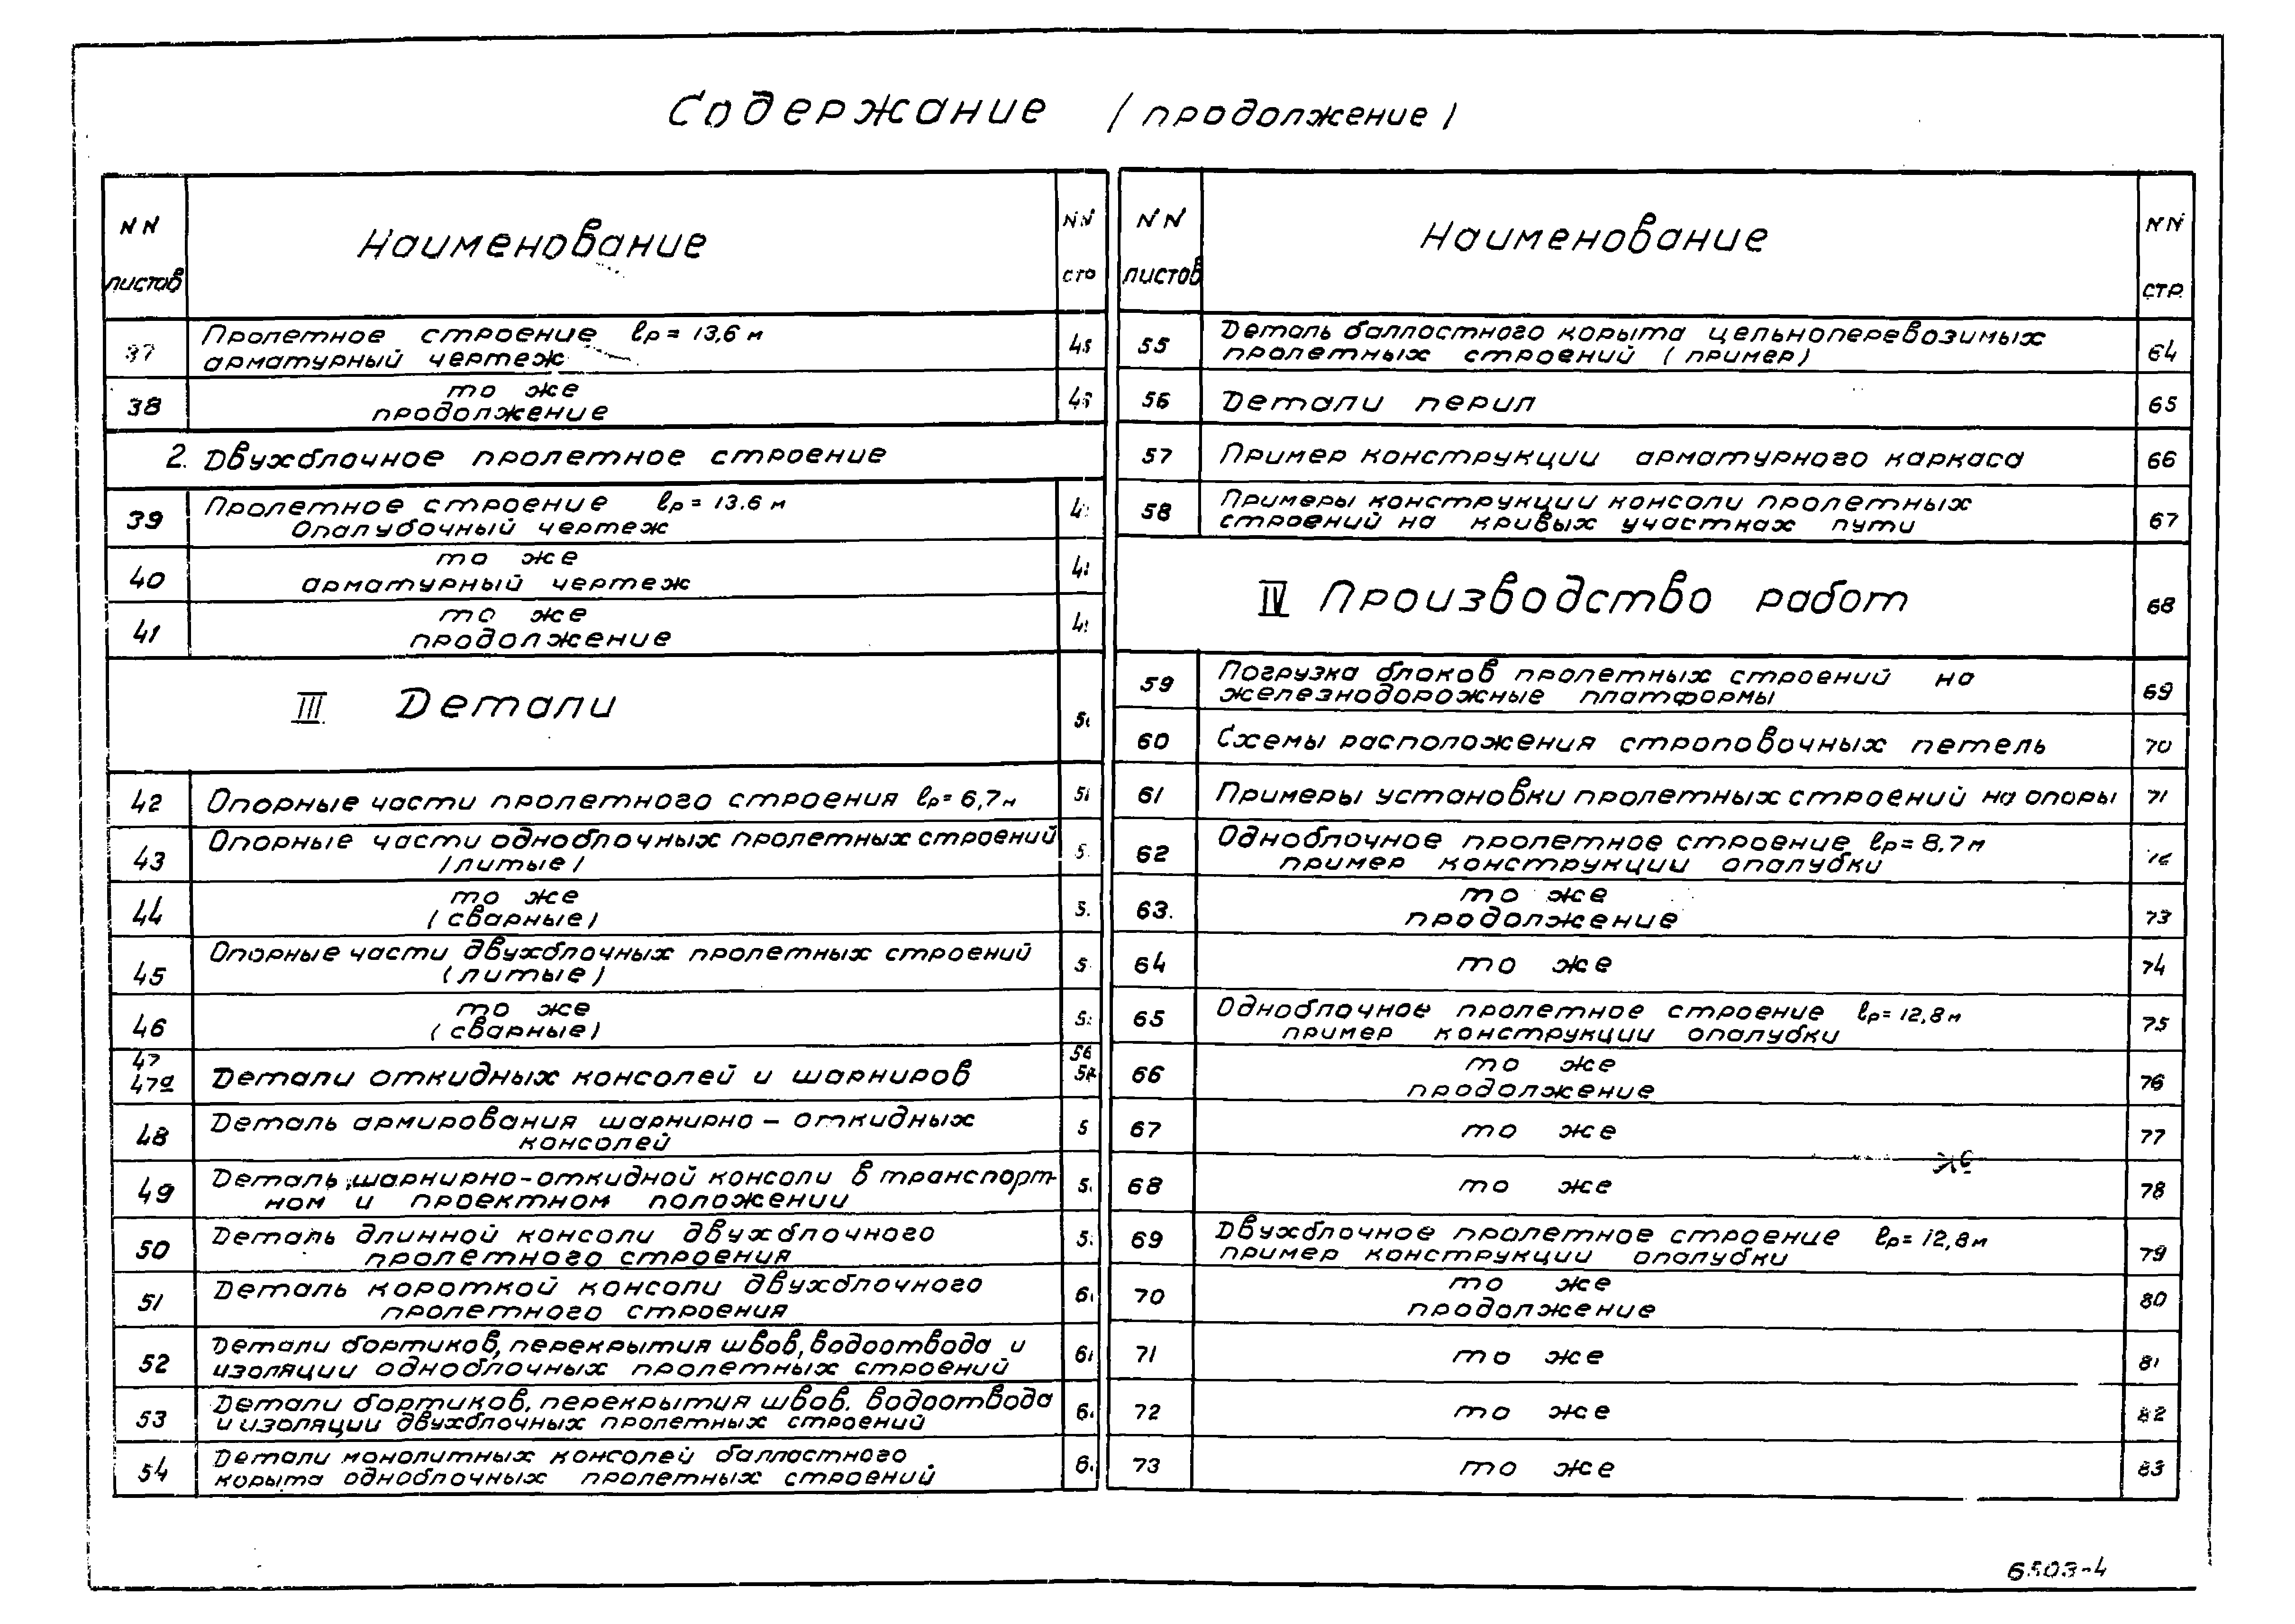 Содержание (продолжение)
NN листов
Наименование
NN стр
37
Пролетное строение lр = 13,6 м
арматурный чертеж
45
38
то же
продолжение
2. Двухблочное пролетное строение
39
Пролетное строение lр = 13.6 м
Опалубочный чертеж
40
то же
арматурный чертеж
41
то же
продолжение
III Детали
42
Опорные части пролетного строения lр = 6,7 м
43
Опорные части одноблочных пролетных строений
(литые)
44
то же
(сварные)
45
Опорные части двухблочных пролетных строений
(литые)
46
то же
(сварные)
47
47а
Детали откидных консолей и шарниров
56
48
Деталь армирования шарнирно - откидных
консолей
49
Деталь шарнирно-откидной консоли в транспорт-
ном и проектном положении
50
Деталь длинной консоли двухблочного
пролетного строения
51
Деталь короткой консоли двухблочного
пролетного строения
52
Детали бортиков, перекрытия швов, водоотвода и
изоляции одноблочных пролетных строений
53
Детали бортиков, перекрытия швов, водоотвода
и изоляции двухблочных пролетных строений
54
Детали монолитных консолей балластного
корыта одноблочных пролетных строений
NN листов
Наименование
NN стр.
55
Деталь балластного корыта цельноперевозимых
пролетных строений (пример)
64
56
Детали перил
65
57
Пример конструкции арматурного каркаса
66
58
Примеры конструкции консоли пролетных
строений на кривых участках пути
67
IV Производство работ
68
59
Погрузка блоков пролетных строений на
железнодорожные платформы
69
60
Схемы расположения строповочных петель
70
61
Примеры установки пролетных строений на опоры
71
62
Одноблочное пролетное строение lр = 8,7 м
пример конструкции опалубки
63.
то же
продолжение
73
64
то же
74
65
Одноблочное пролетное строение lр = 12,8 м
пример конструкции опалубки
75
66
то же
продолжение
76
67
то же
77
68
то же
78
69
Двухблочное пролетное строение lр = 12,8 м
пример конструкции опалубки
79
70
то же
продолжение
80
71
то же
81
72
то же
82
73
то же
83
6503-4